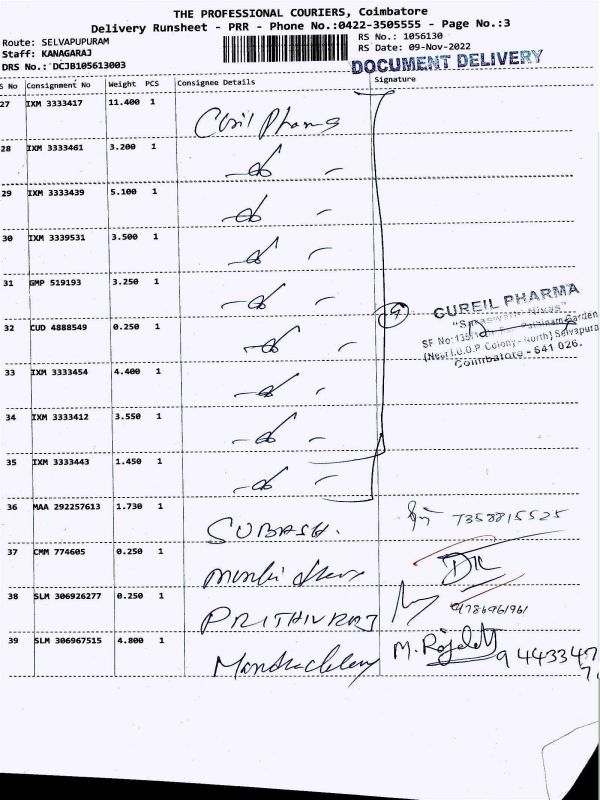 THE PROFESSIONAL COURIERS, Coimbatore
Delivery Runsheet - PRR - Phone No.:0422-3505555 - Page No.:3
Route: SELVAPUPURAM
RS No.: 1056130
Staff: KANAGARAJ
RS Date: 09-Nov-2022
DRS No.: DCJB105613003
DOCUMENT DELIVERY
S No Consignment No Weight PCS Consignee Details Signature
27 IXM 3333417 11.400 1
28 IXM 3333461 3.200 1
29 IXM 3333439 5.100 1
30 IXM 3339531 3.500 1
31 GMP 519193 3.250 1
CUREIL PHARMA
32 CUD 4888549 0.250 1
(Near I.O.O.P Colony - North) Selvapura
Coimbatore - 641 026.
33 IXM 3333454 4.400 1
34 IXM 3333412 3.550 1
35 IXM 3333443 1.450 1
36 MAA 292257613 1.730 1 SUBASH. 7358815525
37 CMM 774605 0.250 1
38 SLM 306926277 0.250 1 PRITHIVRAJ
39 SLM 306967515 4.800 1 M. 9443347